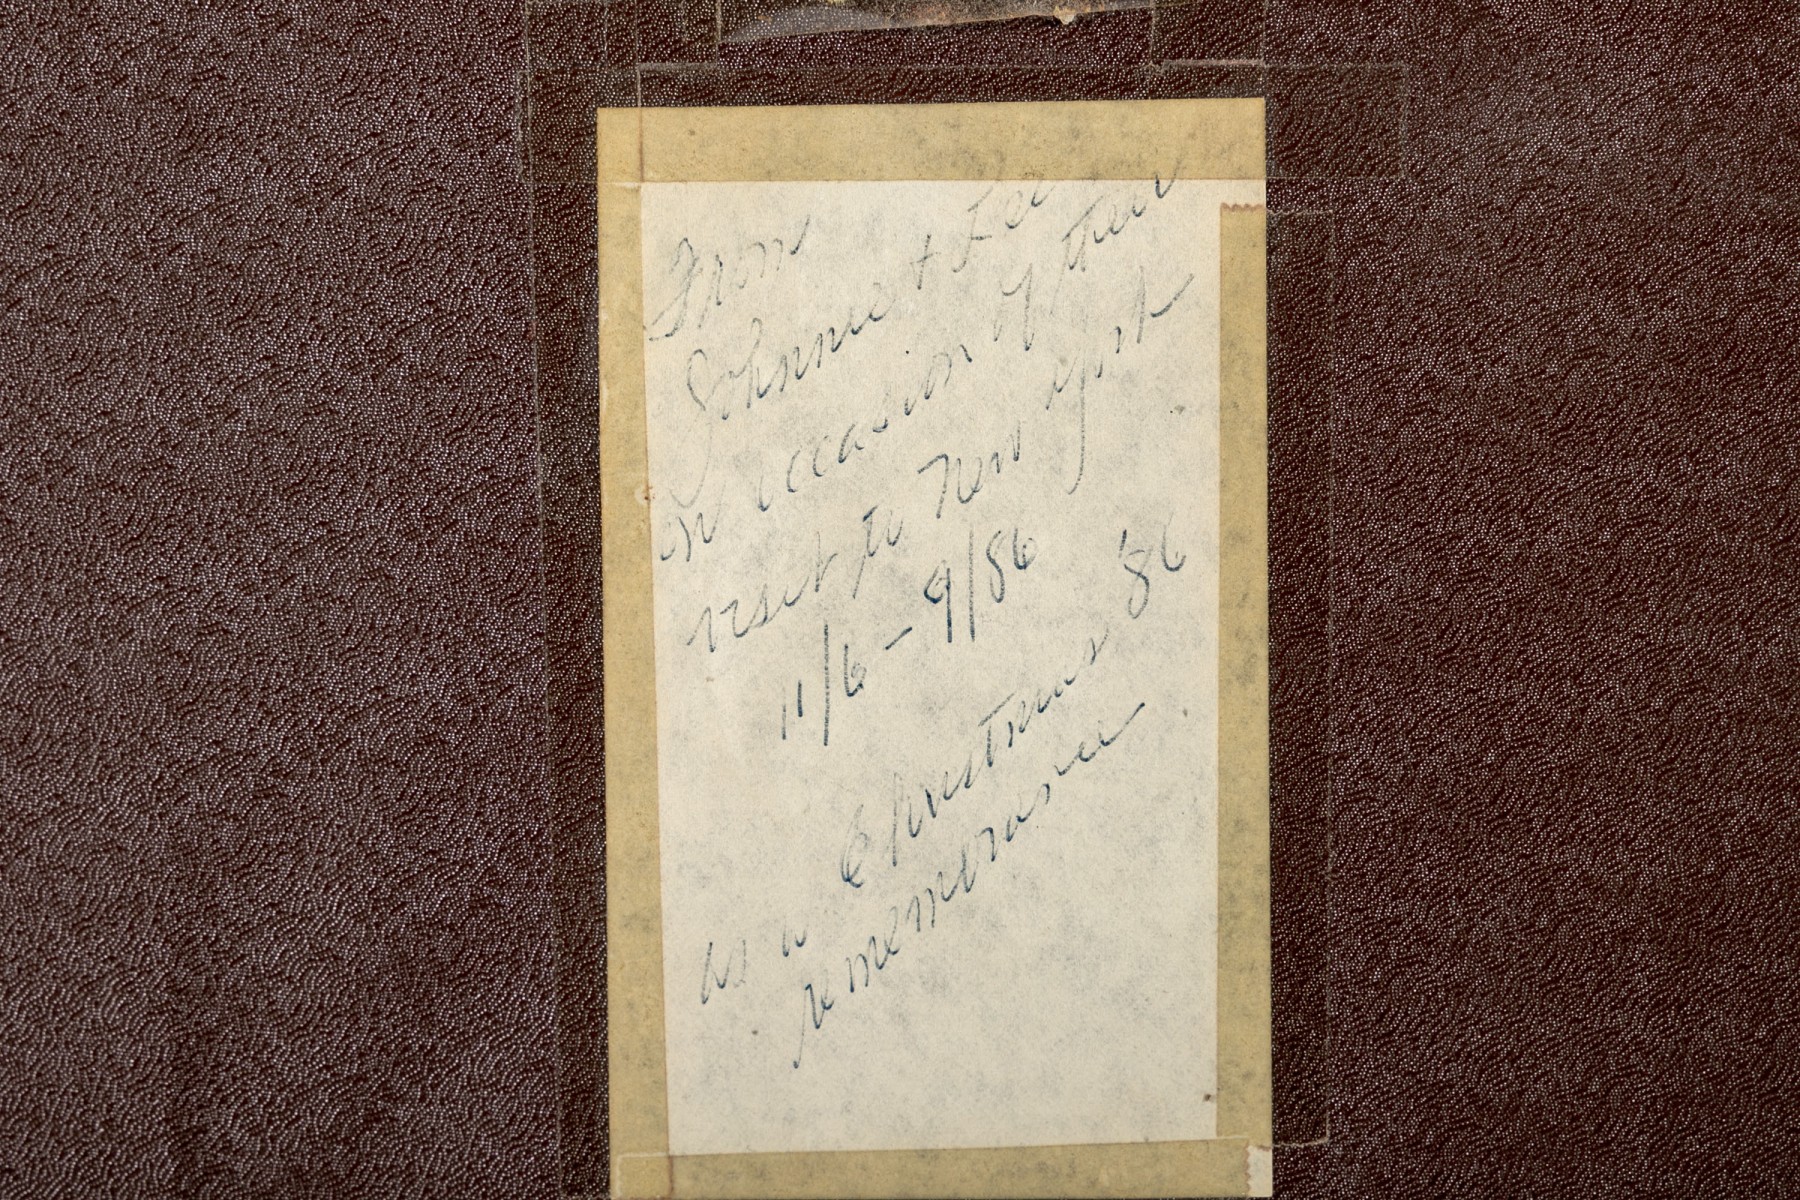 From
Johnnie + Lee
on occasion of their
visit to New York
11/6 - 9/86
as a Christmas '86
remembrance